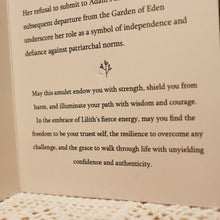 Her refusal to submit to Adam
subsequent departure from the Garden of Eden
underscore her role as a symbol of independence and
defiance against patriarchal norms.
May this amulet endow you with strength, shield you from
harm, and illuminate your path with wisdom and courage.
In the embrace of Lilith's fierce energy, may you find the
freedom to be your truest self, the resilience to overcome any
challenge, and the grace to walk through life with unyielding
confidence and authenticity.